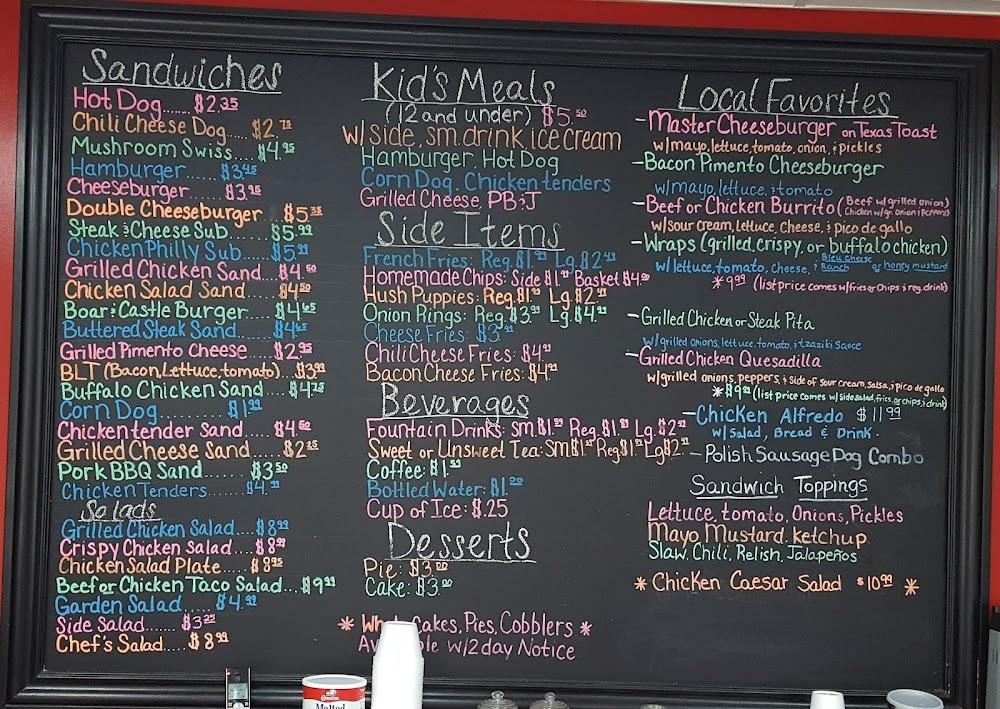 Sandwiches
Hot Dog...... $2.35
Chili Cheese Dog.... $2.75
Mushroom Swiss.... $4.95
Hamburger...... $3.45
Cheeseburger...... $3.95
Double Cheeseburger .. $5.35
Steak & Cheese Sub.... $5.99
Chicken Philly Sub.... $5.99
Grilled Chicken Sand.... $4.50
Chicken Salad Sand.... $4.50
Boar & Castle Burger.... $4.65
Buttered Steak Sand.... $4.65
Grilled Pimento Cheese.... $2.95
BLT (Bacon, Lettuce, tomato)... $3.99
Buffalo Chicken Sand .... $4.75
Corn Dog...... $1.99
Chicken tender Sand .... $4.50
Grilled Cheese Sand .... $2.25
Pork BBQ Sand...... $3.50
Chicken Tenders....... $4.99
Salads
Grilled Chicken Salad... $8.99
Crispy Chicken Salad.... $8.99
Chicken Salad Plate.... $8.95
Beef or Chicken Taco Salad... $9.99
Garden Salad..... $4.99
Side Salad...... $3.25
Chef's Salad.... $8.99
Kid's Meals
(12 and under) $5.50
w/ side, sm. drink, ice cream
Hamburger, Hot Dog
Corn Dog, Chicken tenders
Grilled Cheese, PB & J
Side Items
French Fries: Reg. Lg.
Homemade Chips: Side Basket
Hush Puppies: Reg. Lg.
Onion Rings: Reg. Lg.
Cheese Fries:
Chili Cheese Fries:
Bacon Cheese Fries:
Beverages
Fountain Drinks: Sm. Reg. Lg.
Sweet or Unsweet Tea: Sm Reg Lg
Coffee:
Bottled Water: $1.00
Cup of Ice: $.25
Desserts
Pie: $3.00
Cake: $3.00
* Cakes, Pies, Cobblers *
w/ 2 day Notice
Local Favorites
- Master Cheeseburger on Texas Toast
w/ mayo, lettuce, tomato, onion, & pickles
- Bacon Pimento Cheeseburger
w/ mayo, lettuce, & tomato
- Beef or Chicken Burrito (Beef w/ grilled onion)
Chicken w/ gr. onion & peppers)
w/ sour cream, lettuce, cheese, & pico de gallo
- Wraps (grilled, crispy, or buffalo chicken)
w/ lettuce, tomato, cheese, & Bleu cheese Ranch or honey mustard
* 9.99 (list price comes w/ fries or chips & reg. drink)
- Grilled Chicken or Steak Pita
w/ grilled onions, lettuce, tomato, & tzaziki sauce
- Grilled Chicken Quesadilla
w/ grilled onions, peppers, & side of sour cream, salsa, & pico de gallo
* $9.99 (list price comes w/ side salad, fries, or chips, & drink)
- Chicken Alfredo $11.99
w/ Salad, Bread & Drink.
- Polish Sausage Dog Combo
Sandwich Toppings
Lettuce, tomato, Onions, Pickles
Mayo, Mustard, Ketchup
Slaw, Chili, Relish, Jalapeños
* Chicken Caesar Salad $10.99 *
Malted